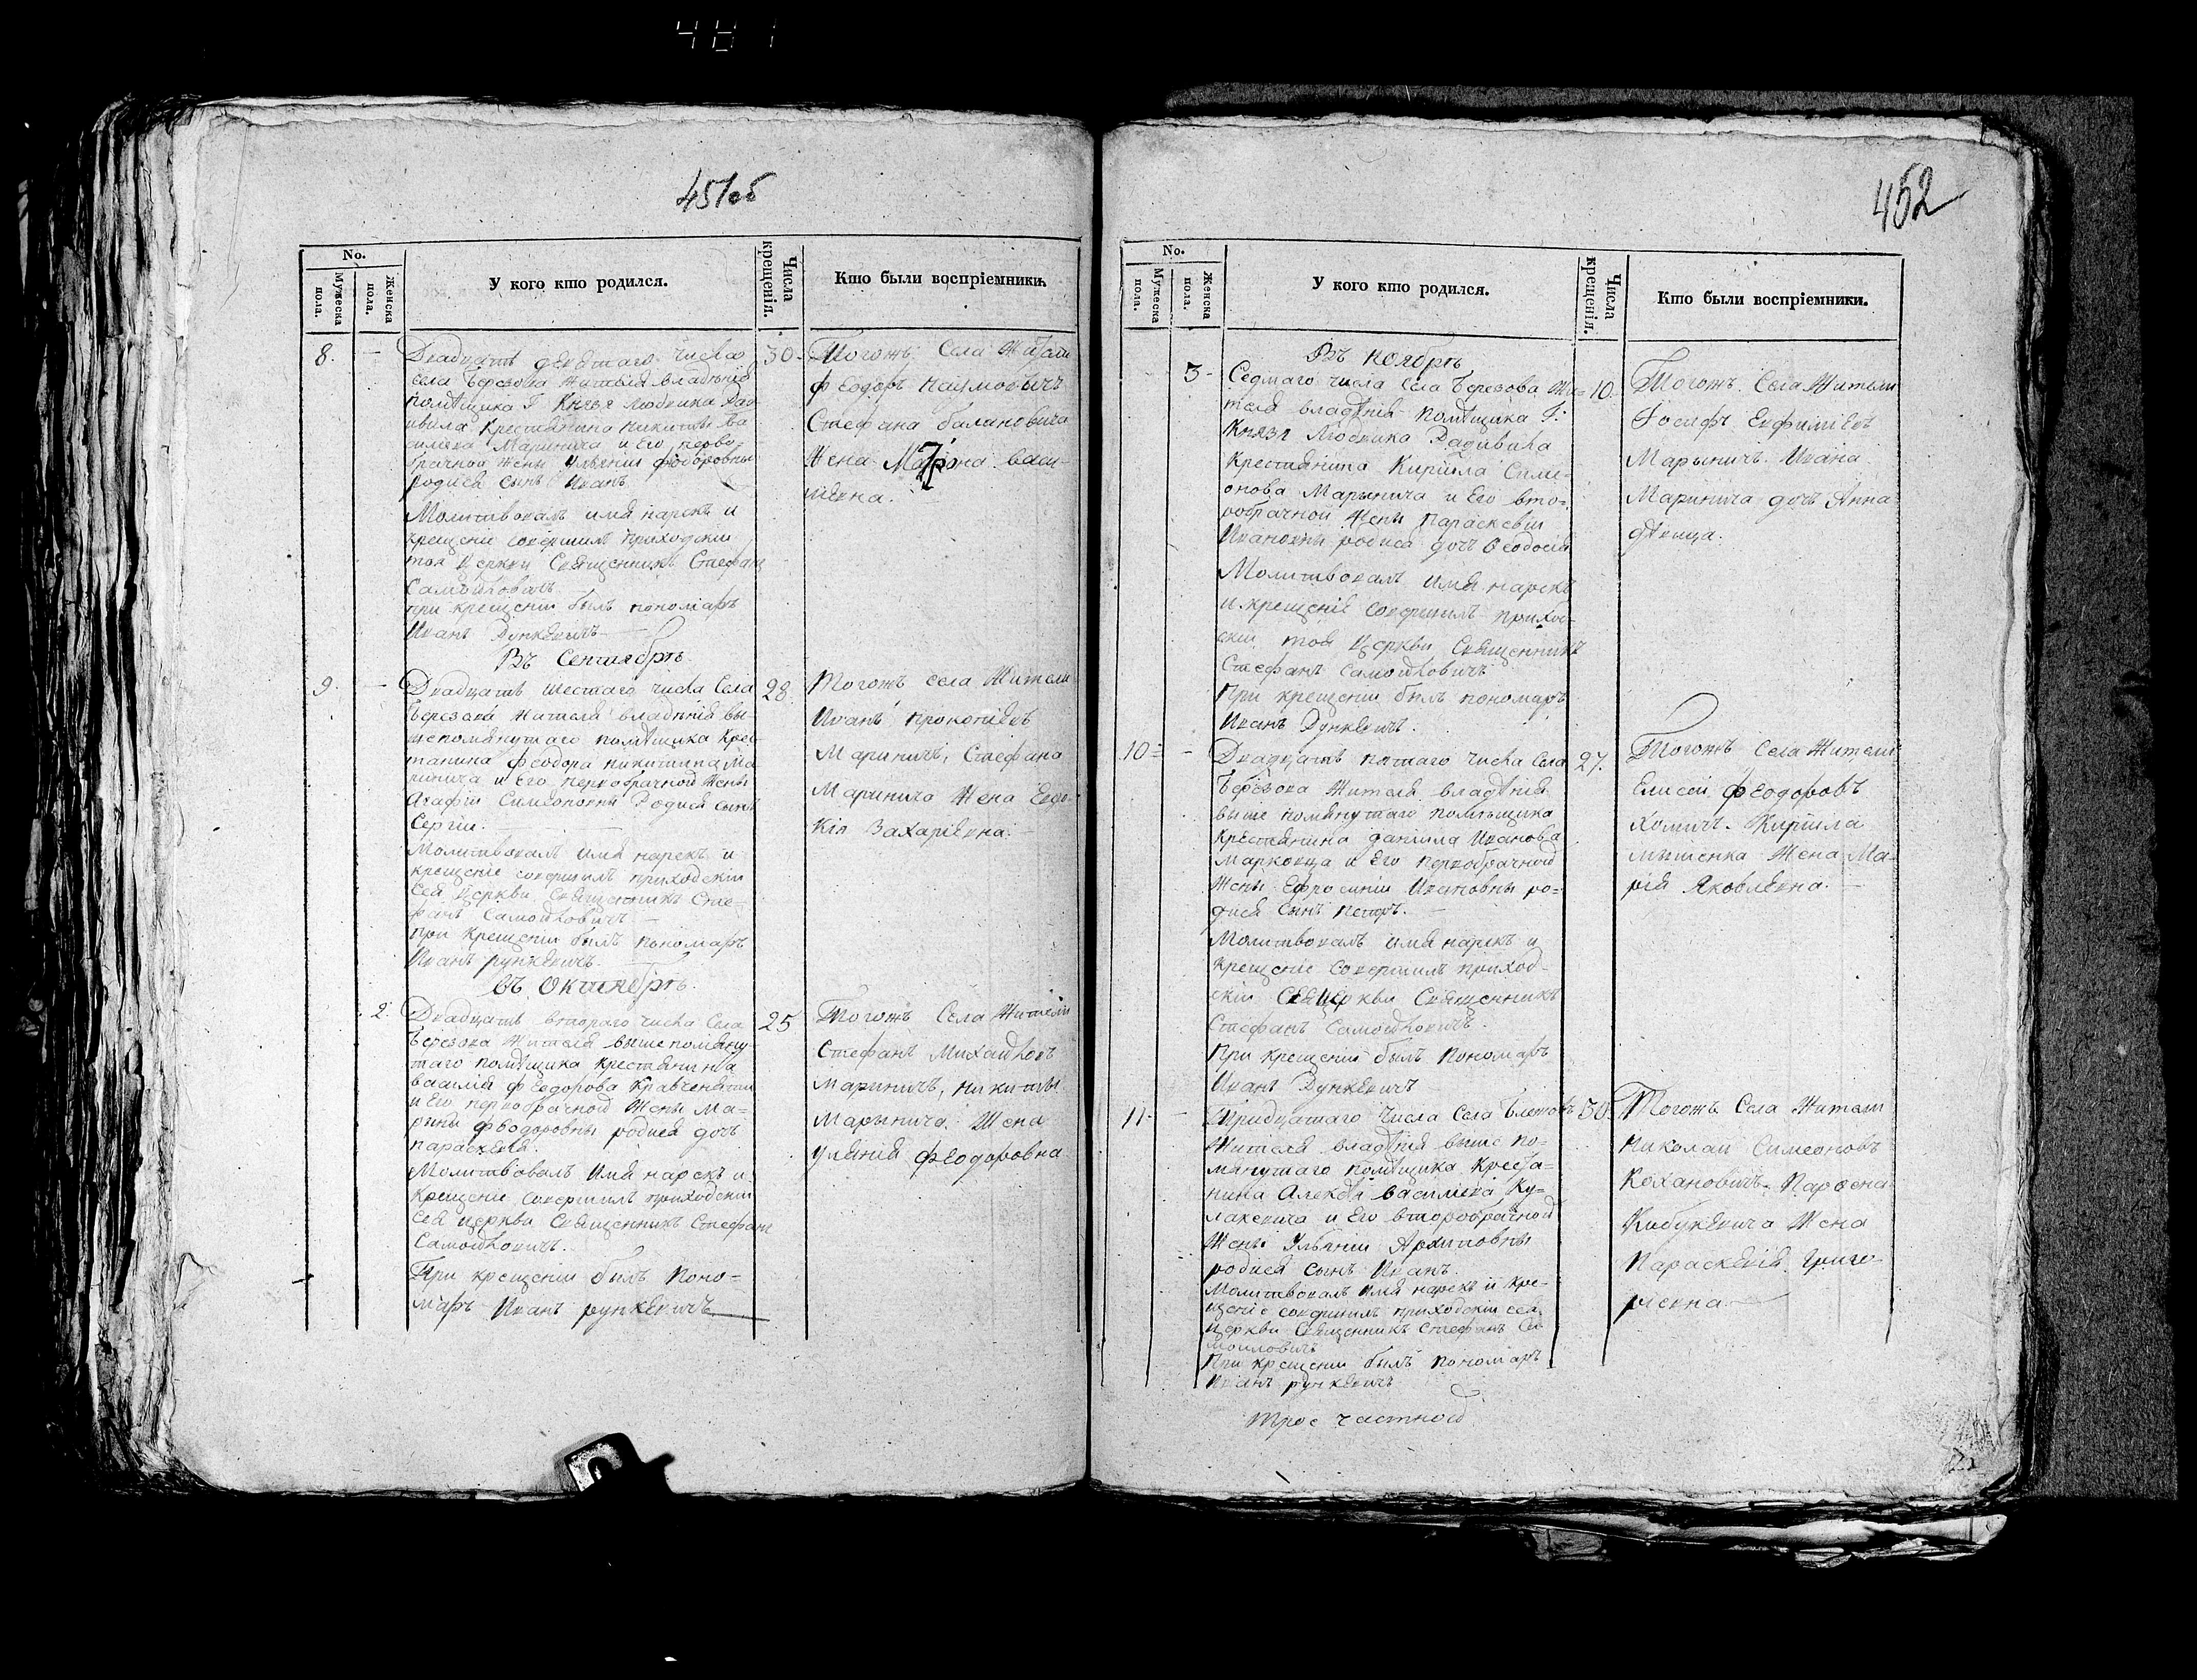 451об
No.
Мужеска пола.
Женска пола.
У кого кто родился.
Числа крещенія.
Кто были воспріемники.
8. -
Двадцать девятаго числа
села Березова жителя владѣнія
помѣщика Г. Князя Людвика Рад
ивила Крестянина Никиты Ва
силева Маринича и Его перво-
брачной Жены Ульяніи Феодоровны
родися сынъ Иванъ
Молитвовалъ имя нарекъ и
крещеніе совершилъ приходскій
тоя Церкви Священникъ Стефан
Самойловичъ
При крещеніи былъ пономаръ
Иванъ Рункевичъ
30.
Тогожъ Села Жители
Феодоръ Наумовичъ
Стефана балановича
Жена Матрона васи-
ліевна.
Въ Сентябрѣ
9. -
Двадцать шестаго числа Села
Березова жителя владѣнія вы-
шепомянутаго помѣщика Крес
тянина Феодора Никитина Ма
ринича и Его первобрачной Жены
Агафіи Симеоновны Родися сынъ
Сергій.
Молитвовалъ имя нарекъ и
крещеніе совершилъ приходскій
Сея Церкви Священникъ Сте-
фанъ Самойловичъ
При Крещеніи былъ пономаръ
Иванъ рункевичъ.
28.
Тогожъ села Жители
Иванъ Прокопіевъ
Мариничъ, Стефана
Маринича Жена Евдо-
кія Захаріевна.
Въ Октябрѣ.
2.
Двадцать втораго числа Села
Березова Жителя вышепомяну
таго помѣщика Крестянина
василія Феодорова Кравченяти
и Его первобрачной Жены Ма-
рины Феодоровны родися дочъ
Параскевія.
Молитвовалъ Имя нарекъ и
Крещеніе Совершилъ приходскій
Сея Церкви Священникъ Стефанъ
Самойловичъ.
При крещеніи былъ Поно-
маръ Иванъ рункевичъ
25
Тогожъ Села Жители
Стефанъ Михайловъ
Мариничъ, Никиты
Марынича Жена
Уляния Феодоровна
452
No.
Мужеска пола.
Женска пола.
У кого кто родился.
Числа крещенія.
Кто были воспріемники.
Въ Ноябрѣ
3-
Седмаго числа Села Березова Жи-
теля владѣнія помѣщика Г:
Князя Людвика Радивила
Крестянина Кирила Сими-
онова Марынича и Его вто-
робрачной Жены Параскевіи
Ивановны родися дочъ Феодосія
Молитвовалъ имя нарекъ
и крещеніе совершилъ приход-
скій тоя Церкви Священникъ
Стефанъ Самойловичъ
При крещеніи былъ пономаръ
Иванъ Рункевичъ.
10.
Тогожъ Села Жители
Іосифъ Евфиміевъ
Марыничъ. Ивана
Маринича дочъ Анна
дѣвица.
10- -
Двадцать пятаго числа Села
Березова Жителя владѣнія
выше помянутаго помѣщика
Крестянина даніила Иванова
Марковца и Его первобрачной
Жены Ефросиніи Ивановны ро-
дися сынъ Петръ.
Молитвовалъ имя нарекъ и
Крещеніе Совершилъ приход-
скій Сея Церкви Священникъ
Стефанъ Самойловичъ.
При Крещеніи былъ Пономаръ
Иванъ Рункевичъ
27.
Тогожъ Села Жители
Елисей Феодоровъ
Хомичъ. Кирила
мышенка Жена Ма-
рія Яковлевна.
11- -
Тридцатаго Числа Села
Жителя владѣнія выше по-
мянутаго помѣщика Креста-
нина Алексѣя василіева Ку-
лакевича и Его второбрачной
Жены Ульяніи Архиповны
родися сынъ Иванъ.
Молитвовалъ Имя нарекъ и Кре-
щеніе совершилъ приходскій сея
Церкви Священникъ Стефанъ Са
мойловичъ
При крещеніи былъ пономаръ
Иванъ рункевичъ
30.
Тогожъ Села Жители
Николай Симеоновъ
Кохановичъ. Парфена
Кибукевича Жена
Параскевія Григо-
ріевна.
Трое частной